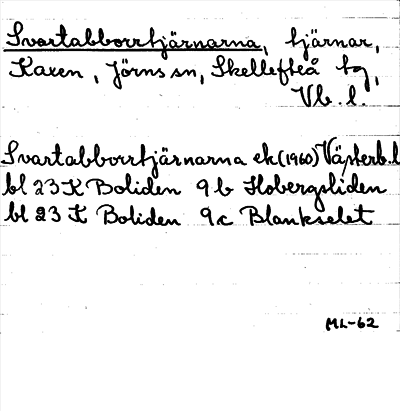 Svartabborrtjärnarna, tjärnar,
Karen, Jörns sn, Skellefteå tg,
Vb. l.
Svartabborrtjärnarna ek (1960) Västerb. l
bl 23 K Boliden 9 b Hobergsliden
bl 23 K Boliden 9 c Blankselet
ML-62